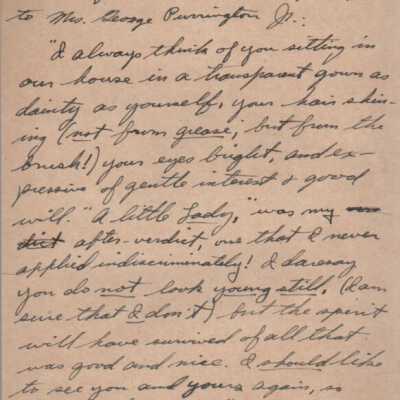 to Mrs. George Purrington Jr.:
"I always think of you sitting in
our house in a transparent gown as
dainty as yourself, your hair shin-
ing (not from grease; but from the
brush!) your eyes bright, and ex-
pressive of gentle interest & good
will." "A little Lady," was my ver
dict after-verdict, one that I never
applied indiscriminately! I daresay
you do not look young still, (I am
sure that I don't) but the spirit
will have survived of all that
was good and nice. I should like
to see you and yours again, so